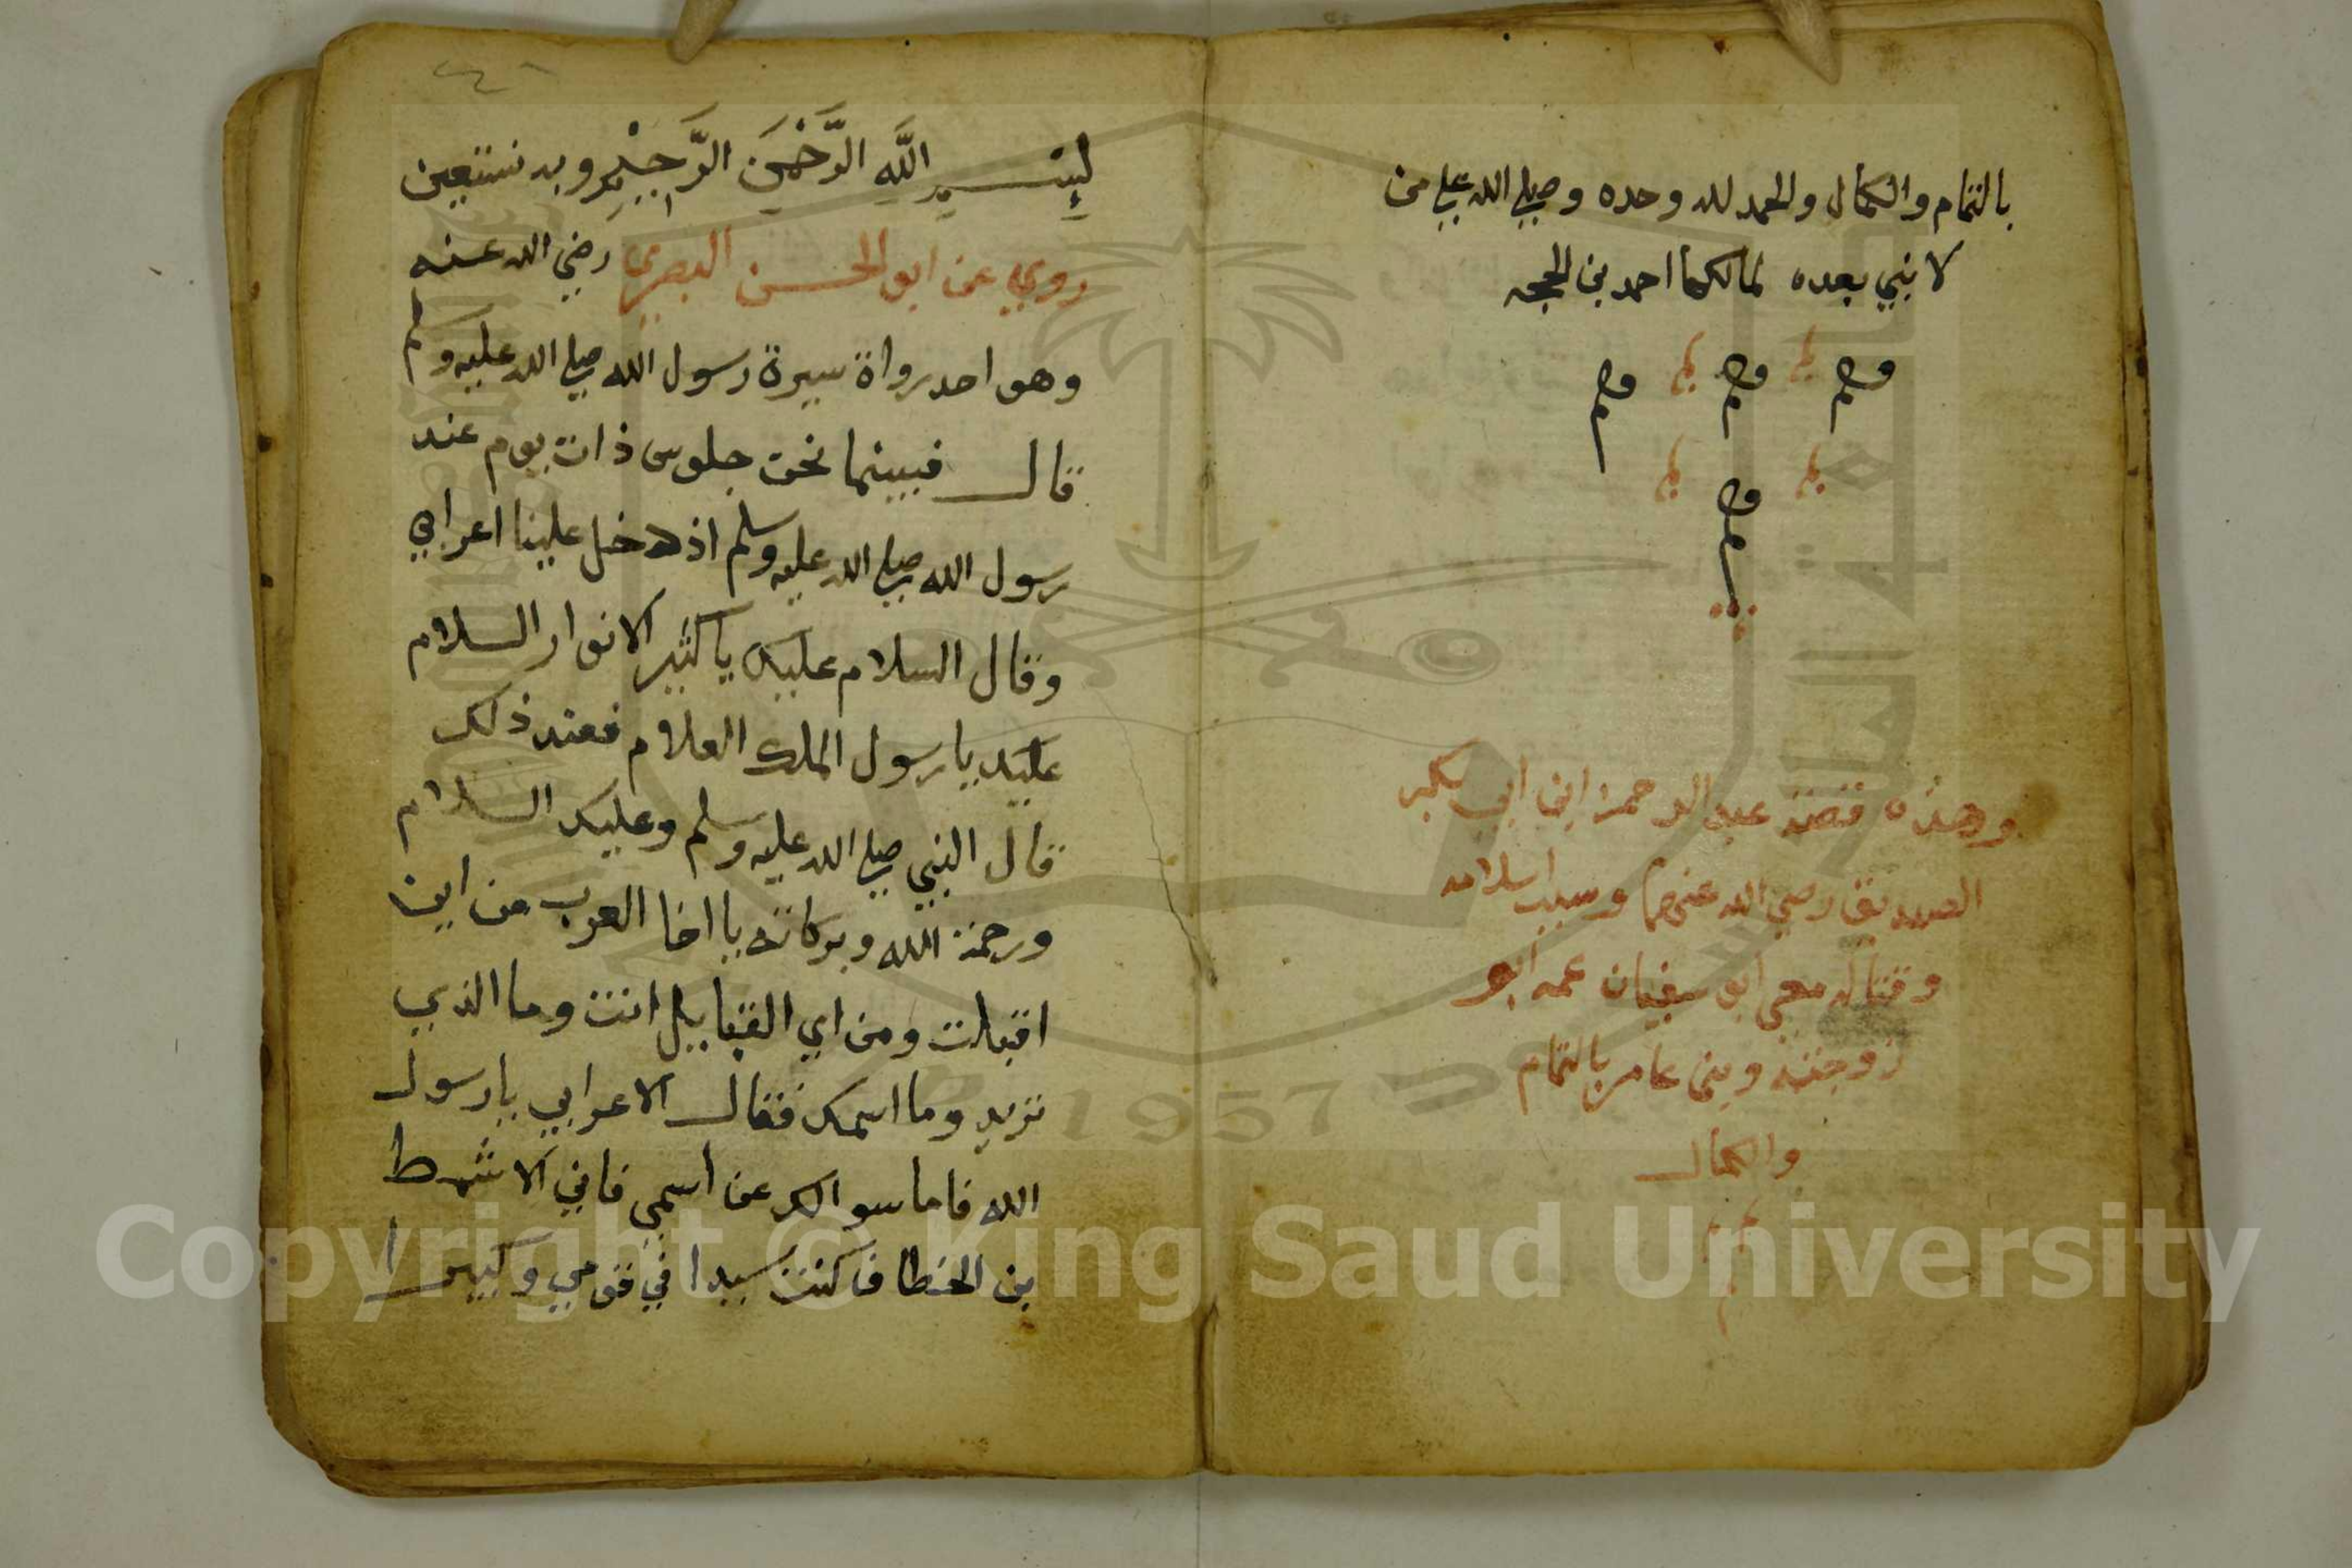 بالتمام والكمال والحمد لله وحده وصلي الله علي من
لا نبي بعده لمالكها احمد بن الحجه
وهذه قصة عبد الرحمن ابن ابي بكر
الصديق رضي الله عنهما وسبب اسلامه
وقتاله معي ابو سفيان عمه ابو
زوجته وبني عامر بالتمام
والكمال
بسم الله الرحمن الرحيم وبه نستعين
روي عن ابو الحسن البصري رضي الله عنه
وهو احد رواة سيرة رسول الله صلي الله عليه وسلم
قال فبينما نحن جلوس ذات يوم عند
رسول الله صلي الله عليه وسلم اذ دخل علينا اعرابي
وقال السلام عليك يا كثير الانوار السلام
عليك يا رسول الملك العلام فعند ذلك
قال النبي صلي الله عليه وسلم وعليك السلام
ورحمة الله وبركاته يا اخا العرب من اين
اقبلت ومن اي القبايل انت وما الذي
تريد وما اسمك فقال الاعرابي يا رسول
الله فاما سوالك عن اسمي فاني الاشرط
بن الخطاف كنت سيدا في قومي وكبيرا
1957
Copyright © King Saud University